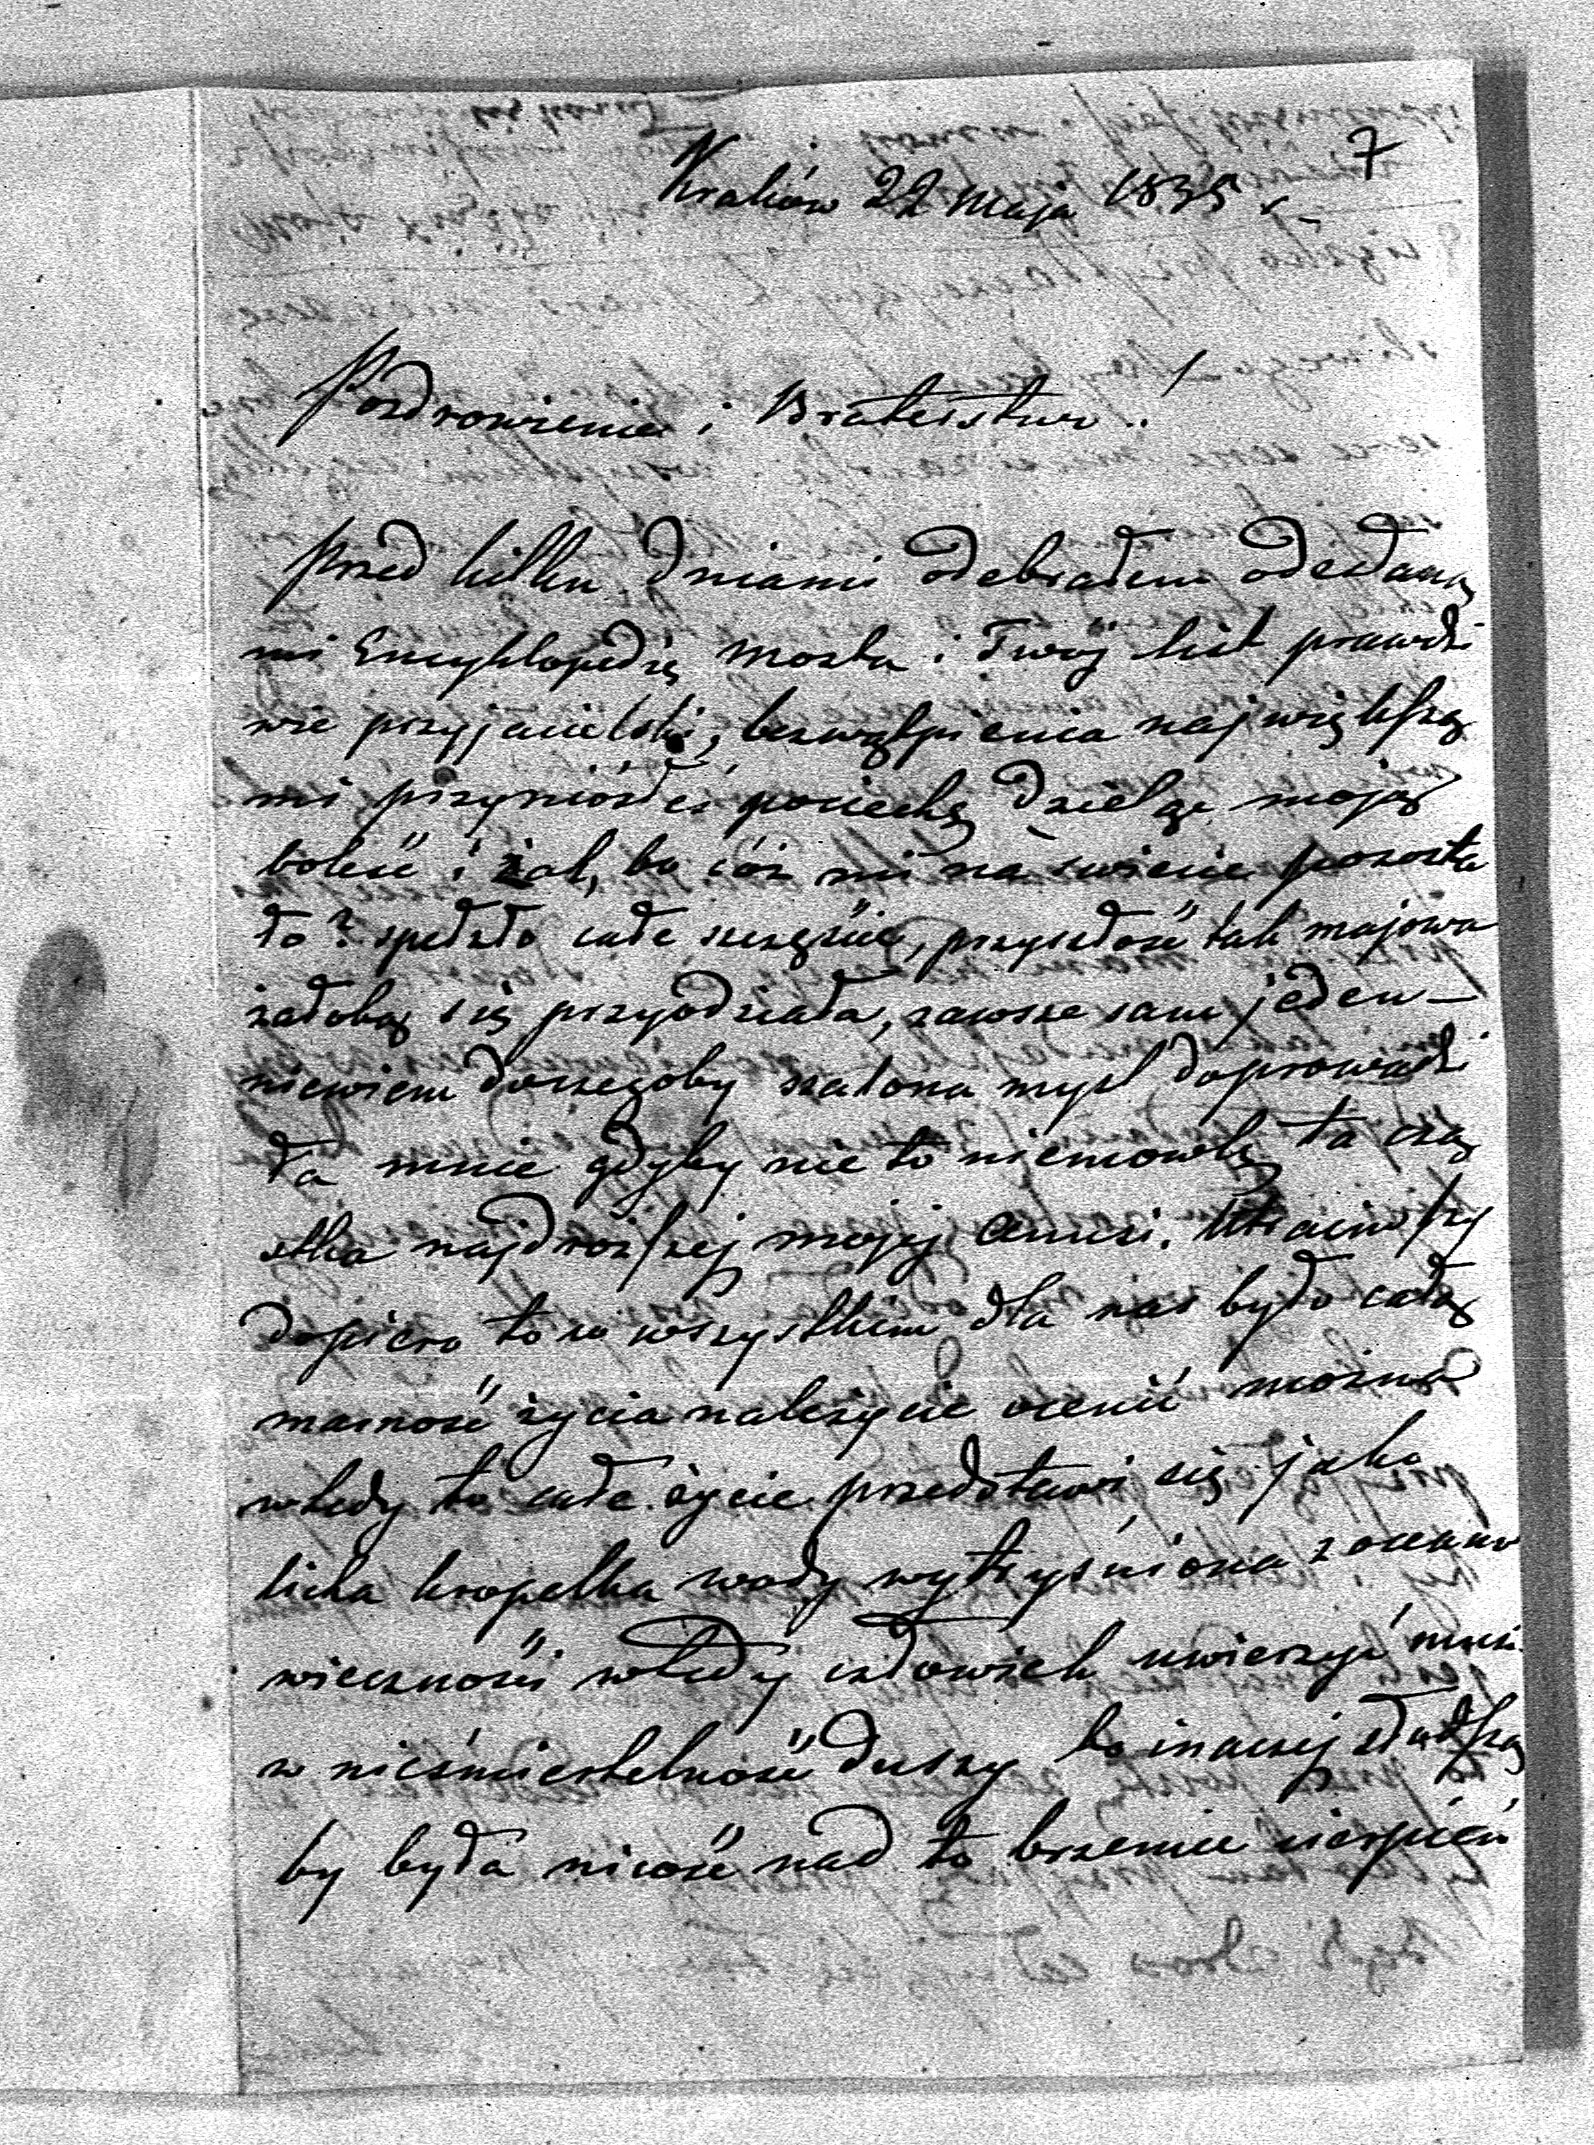 7
Kraków 22 maja 1835 r.
Pozdrowienie i Braterstwo!
Przed kilku dniami odebrałem odesłaną
mi Encyklopedię Mosta i Twój list prawdzi
wie przyjacielski, bezwątpienia największą
mi przyniosłeś pociechę dzieląc moją
boleść i żal, bo cóż mi na swiecie pozosta
ło? spełzło całe szczęście, przyszłość tak majowa
żałobą się przyodziała, zawsze sam jeden –
niewiem doczegoby szalona mysl doprowadzi
ła mnie gdyby nie to niemowlę, ta czą
stka najdroższej mojej Anusi. Utraciwszy
dopiero to co wszystkiem dla nas było całą
marność życia należycie ocenić można
wtedy to całe życie przedstawi się jako
licha kropelka wody wytryśniona z oceanu
wieczności wtedy człowiek uwierzyć musi
w nieśmiertelność duszy bo inaczej słodszą
by była nicość nad to brzemie cierpień